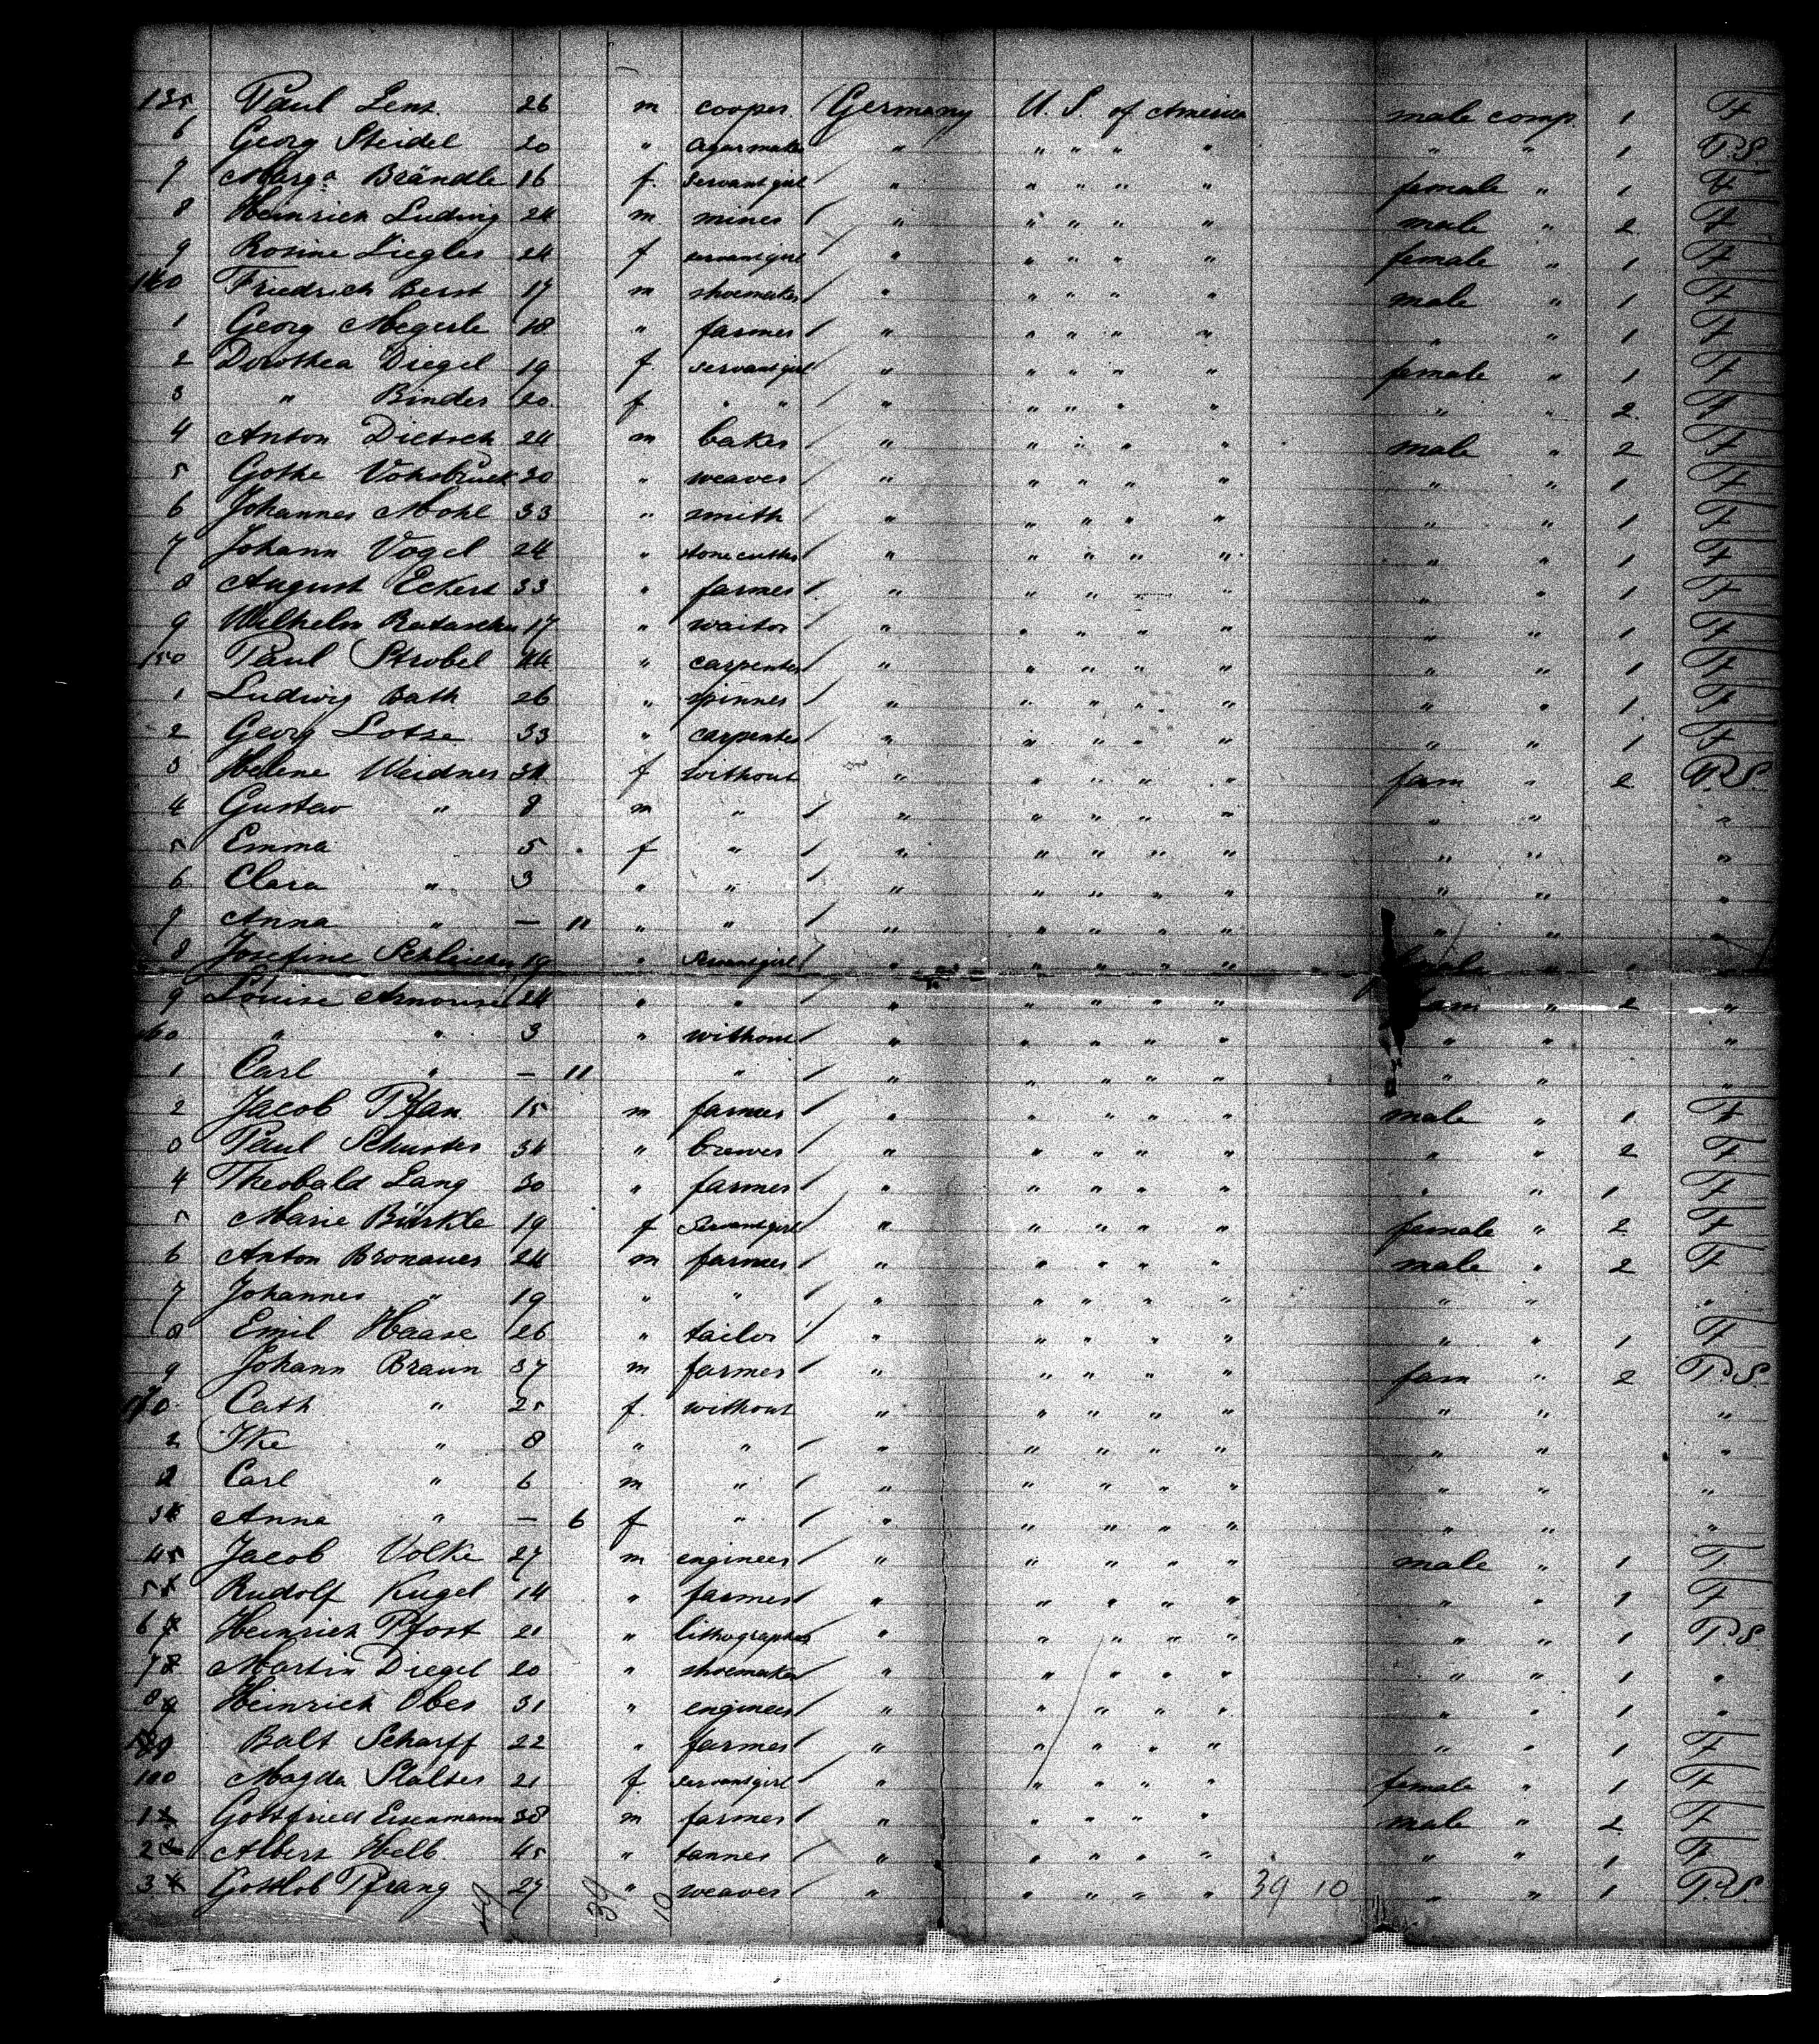 135 Paul Lenz 26 m cooper Germany U. S. of America male comp. 1 F
6 Georg Steidel 20 " cigarmaker " " " " " " " 1 P.S.
7 Marga Brändle 16 f. servant girl " " " " " female " 1 F
8 Heinrich Ludwig 24 m miner " " " " " male " 2 F
9 Rosine Ziegler 24 f servant girl " " " " " female " 1 F
140 Friedrich Berst 17 m shoemaker " " " " " male " 1 F
1 Georg Megerle 18 " farmer " " " " " " " 1 F
2 Dorothea Diegel 19 f servant girl " " " " " female " 1 F
3 " Binder 20 f " " " " " " " " " 2 F
4 Anton Dietsch 24 m baker " " " " " male " 2 F
5 Gothe 30 " weaver " " " " " " " 1 F
6 Johannes Mohl 33 " smith " " " " " " " 1 F
7 Johann Vogel 24 " stonecutter " " " " " " " 1 F
8 August Eckert 33 " farmer " " " " " " " 1 F
9 Wilhelm 17 " waitor " " " " " " " 1 F
150 Paul Strobel 44 " carpenter " " " " " " " 1 F
1 Ludwig Bath 26 " spinner " " " " " " " 1 F
2 Georg Lotze 33 " carpenter " " " " " " " 1 F
3 Helene Weidner 34 f without " " " " " fam " 2 P.S.
4 Gustav " 8 m " " " " " " " " "
5 Emma " 5 f " " " " " " " " "
6 Clara " 3 " " " " " " " " " "
7 Anna " — 11 " " " " " " " " " "
8 Josefine 19 " servant girl " " " " " " "
9 Louise 24 " " " " " " " fam " 2 "
160 " " 3 " without " " " " " " " "
1 Carl " — 11 " " " " " " " " "
2 Jacob Pfan 15 m farmer " " " " " male " 1 F
3 Paul Schuster 34 " brewer " " " " " " " 2 F
4 Theobald Lang 30 " farmer " " " " " " " 1 F
5 Marie Bürkle 19 f servant girl " " " " " female " 2 F
6 Anton Bronauer 24 m farmer " " " " " male " 2 F
7 Johannes " 19 " " " " " " " " " "
8 Emil Haase 26 " tailor " " " " " " " 1 F
9 Johann Braun 37 m farmer " " " " " fam " 2 P.S.
170 Cath " 25 f. without " " " " " " " "
2 Ike " 8 " " " " " " " " " "
2 Carl " 6 m " " " " " " " " "
3 Anna " — 6 f " " " " " " " " "
4 5 Jacob Volke 27 m engineer " " " " " male " 1 F
5 Rudolf Kugel 14 " farmer " " " " " " " 1 F
6 7 Heinrich Pfost 21 " lithographer " " " " " " " 1 P.S.
7 8 Martin Diegel 20 " shoemaker " " " " " " " 1 "
8 9 Heinrich Ober 31 " engineer " " " " " " " 1 "
9 Balt Scharff 22 " farmer " " " " " " " 1 F
180 Magda Stalter 21 f servant girl " " " " " female " 1 F
1 Gottfried Eisenmann 38 m farmer " " " " " male " 2 F
2 Albert Helb 45 " tanner " " " " " " " 1 F
3 Gottlob Pfrang 27 " weaver " " " " " 39 10 " " 1 P.S.
49 39 10